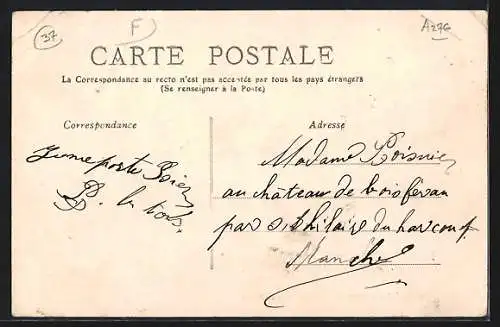 37
F
A276
CARTE POSTALE
La Correspondance au recto n'est pas acceptée par tous les pays étrangers
(Se renseigner à la Poste)
Correspondance
Adresse
Je me porte bien
Madame Poisnier
au château de bois féran
par St hilaire du harcouf
Manche